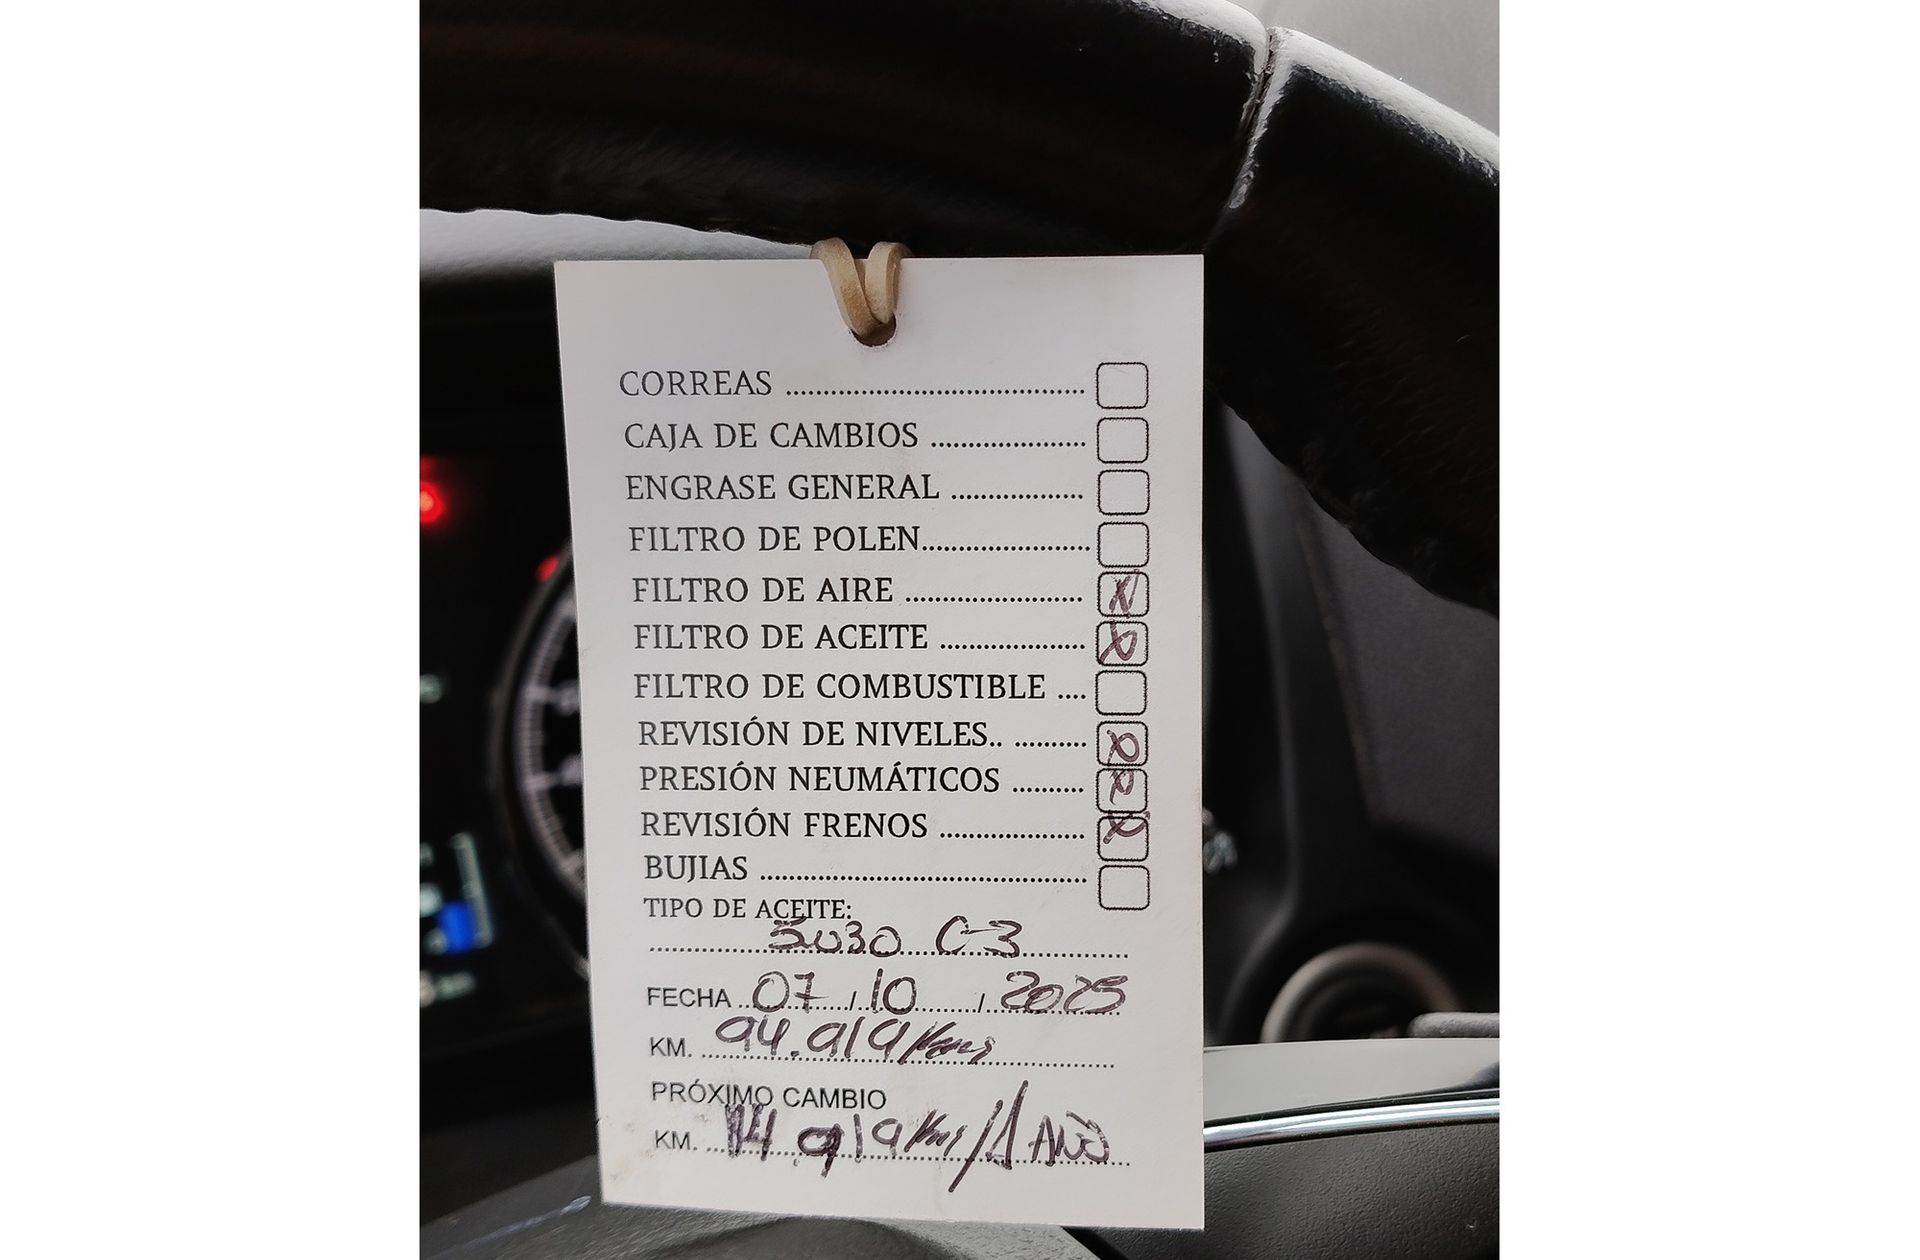 CORREAS ........................................
CAJA DE CAMBIOS .....................
ENGRASE GENERAL ..................
FILTRO DE POLEN.......................
FILTRO DE AIRE ........................ X
FILTRO DE ACEITE .................... X
FILTRO DE COMBUSTIBLE ....
REVISIÓN DE NIVELES.. .......... X
PRESIÓN NEUMÁTICOS .......... X
REVISIÓN FRENOS .................... X
BUJIAS .............................................
TIPO DE ACEITE:
5w30 C-3
FECHA 07 / 10 / 2025
KM. 94.919 Kms
PRÓXIMO CAMBIO
KM. 114.919 Kms / 1 AÑO